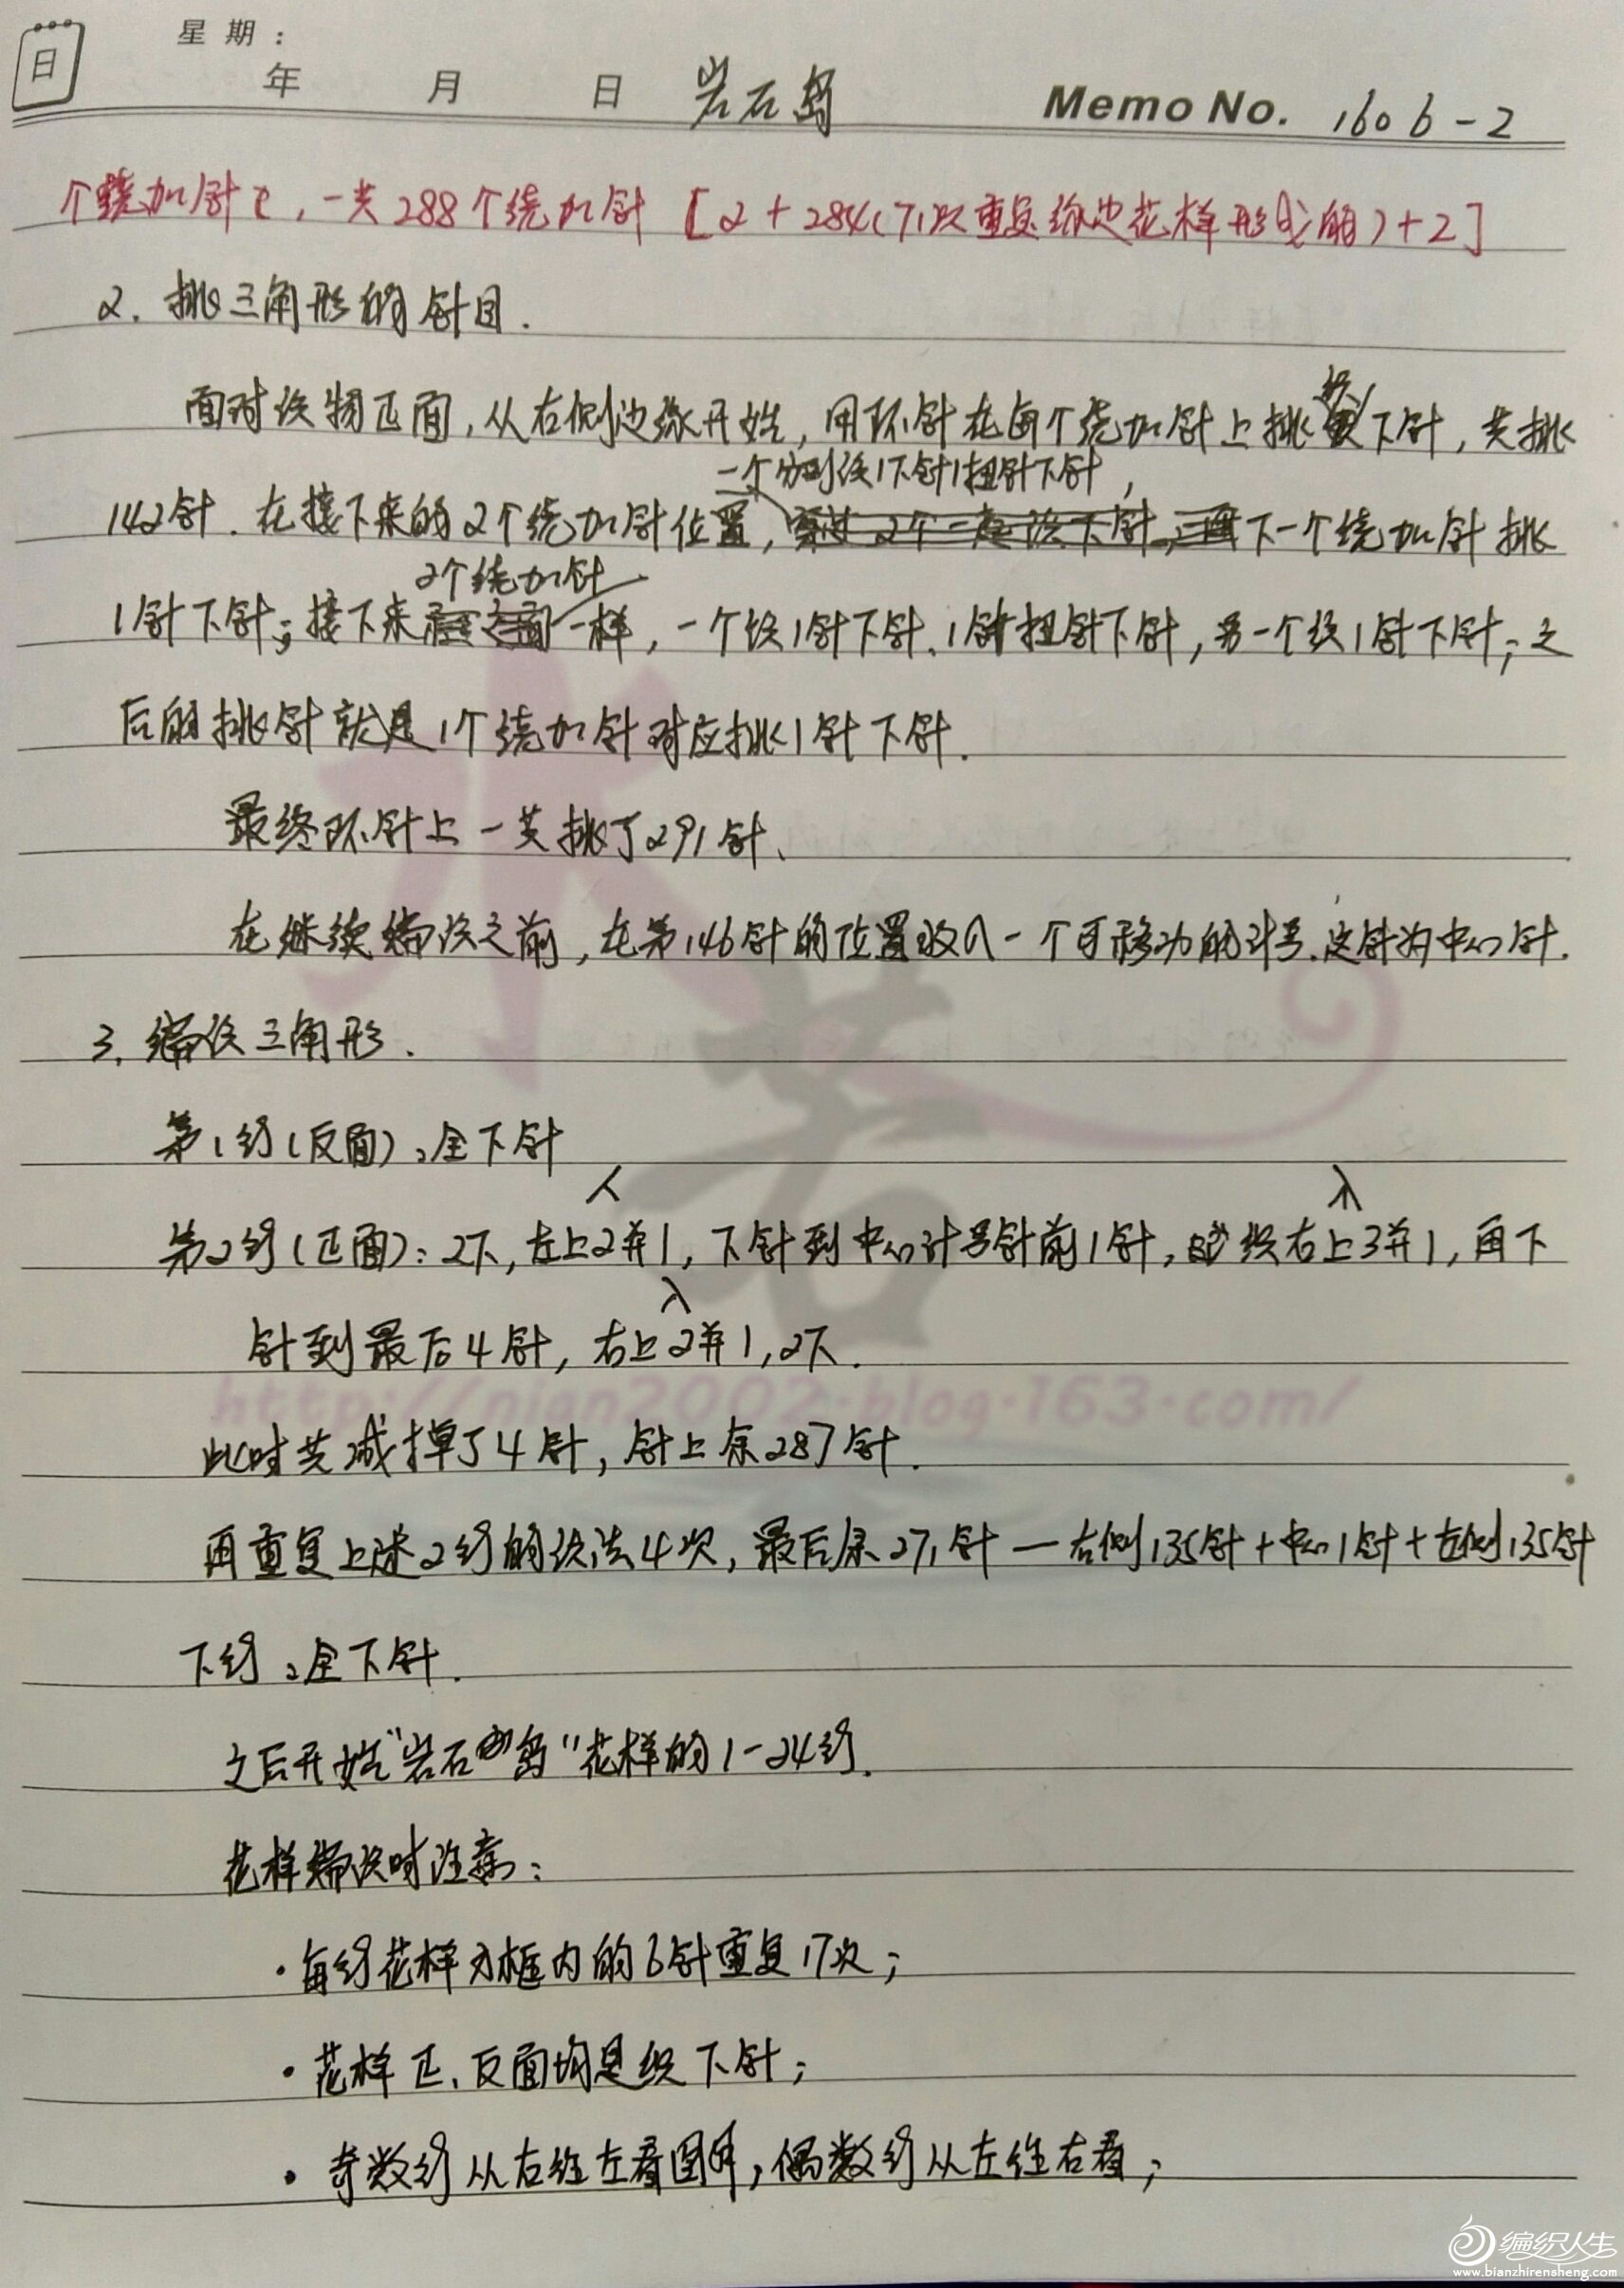 日
星 期 ：
年 月 日 岩石岛 Memo No. 1606-2
个绕加针，一共288个绕加针 [2+284(71次重复缘边花样形成的)+2]
2. 挑三角形的针目.
面对织物正面,从右侧边缘开始,用环针在每个绕加针上挑织下针,共挑
142针.在接下来的2个绕加针位置,一个分别织1下针1扭针下针,下一个绕加针挑
1针下针;接下来2个绕加针一样,一个织1针下针.1针扭针下针,另一个织1针下针;之
后的挑针就是1个绕加针对应挑1针下针.
最终环针上一共挑了291针、
在继续编织之前,在第146针的位置放入一个可移动的计号.这针为中心针.
3. 编织三角形.
第1行(反面):全下针
人 入
第2行(正面):2下,左上2并1,下针到中心计号针前1针,织右上3并1,再下
入
针到最后4针,右上2并1,2下.
此时共减掉了4针,针上余287针.
再重复上述2行的织法4次,最后余271针—右侧135针+中心1针+左侧135针
下行:全下针.
之后开始"岩石岛"花样的1-24行.
花样编织时注意:
·每行花样方框内的6针重复17次;
·花样正、反面均是织下针;
·奇数行从右往左看图解,偶数行从左往右看;
水若
http://nian2002.blog.163.com/
编织人生
www.bianzhirensheng.com